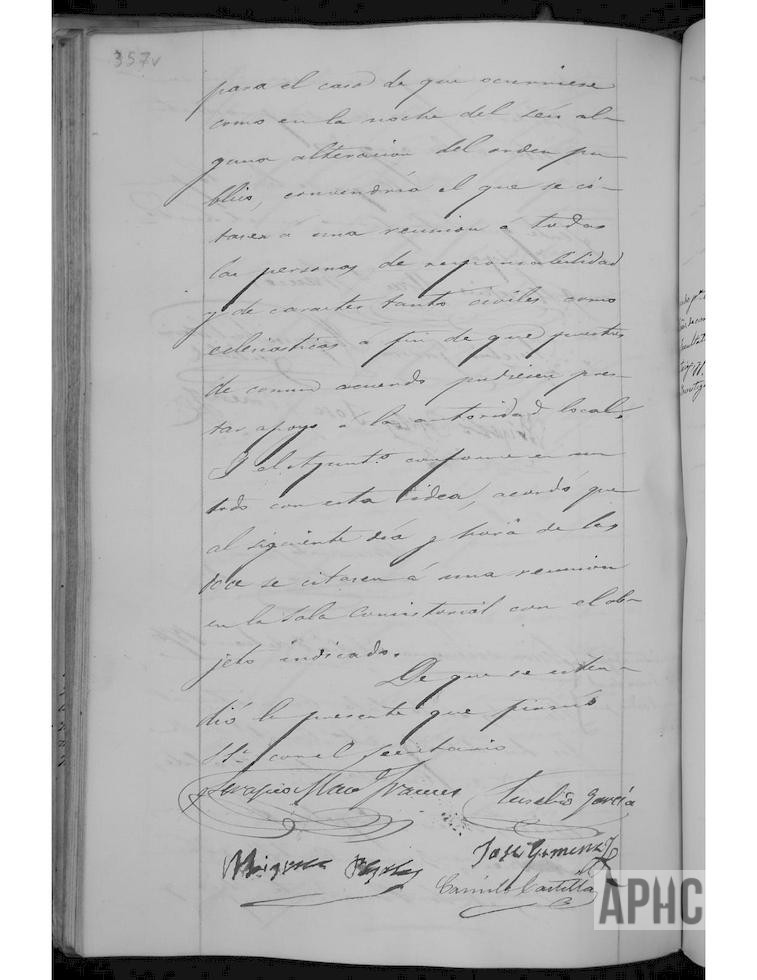 357v
para el caso de que ocurriese
como en la noche del seis al-
guna alteracion del orden pu-
blico, convendría el que se ci-
tasen a una reunion á todas
las personas de responsabilidad
y de caracter tanto civiles como
eclesiasticas a fin de que puestos
de comun acuerdo pudiesen pres-
tar apoyo á la autoridad local.
Y el Ayunt.º conforme en un
todo con esta idea, acordó que
al siguiente día y hora de las
doce se citasen á una reunion
en la Sala Consistorial con el ob-
jeto indicado.
De que se esten-
dió la presente que firmó
con el Secretario
Eusebio García
Miguel
José Gimenez
Camilo Castilla
APHC